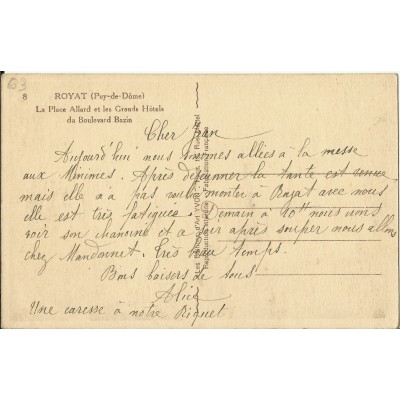 63
8 ROYAT (Puy-de-Dôme)
La Place Allard et les Grands Hôtels
du Boulevard Bazin
Cher Jean
Aujourd'hui nous sommes allées à la messe
aux Minimes. Après déjeuner la tante est venue
mais elle a pas voulu monter à Royat avec nous
elle est très fatiguée. Demain à 10h nous irons
voir son chanoine et ce soir après souper nous allons
chez Mandonnet. Très beau temps.
Bons baisers de tous
Alice
Une caresse à notre Riquet